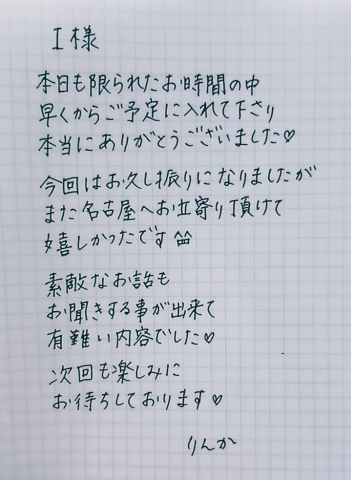 I様
本日も限られたお時間の中
早くからご予定に入れて下さり
本当にありがとうございました♡
今回はお久し振りになりましたが
また名古屋へお立寄り頂けて
嬉しかったです
素敵なお話も
お聞きする事が出来て
有難い内容でした♡
次回も楽しみに
お待ちしております♡
りんか